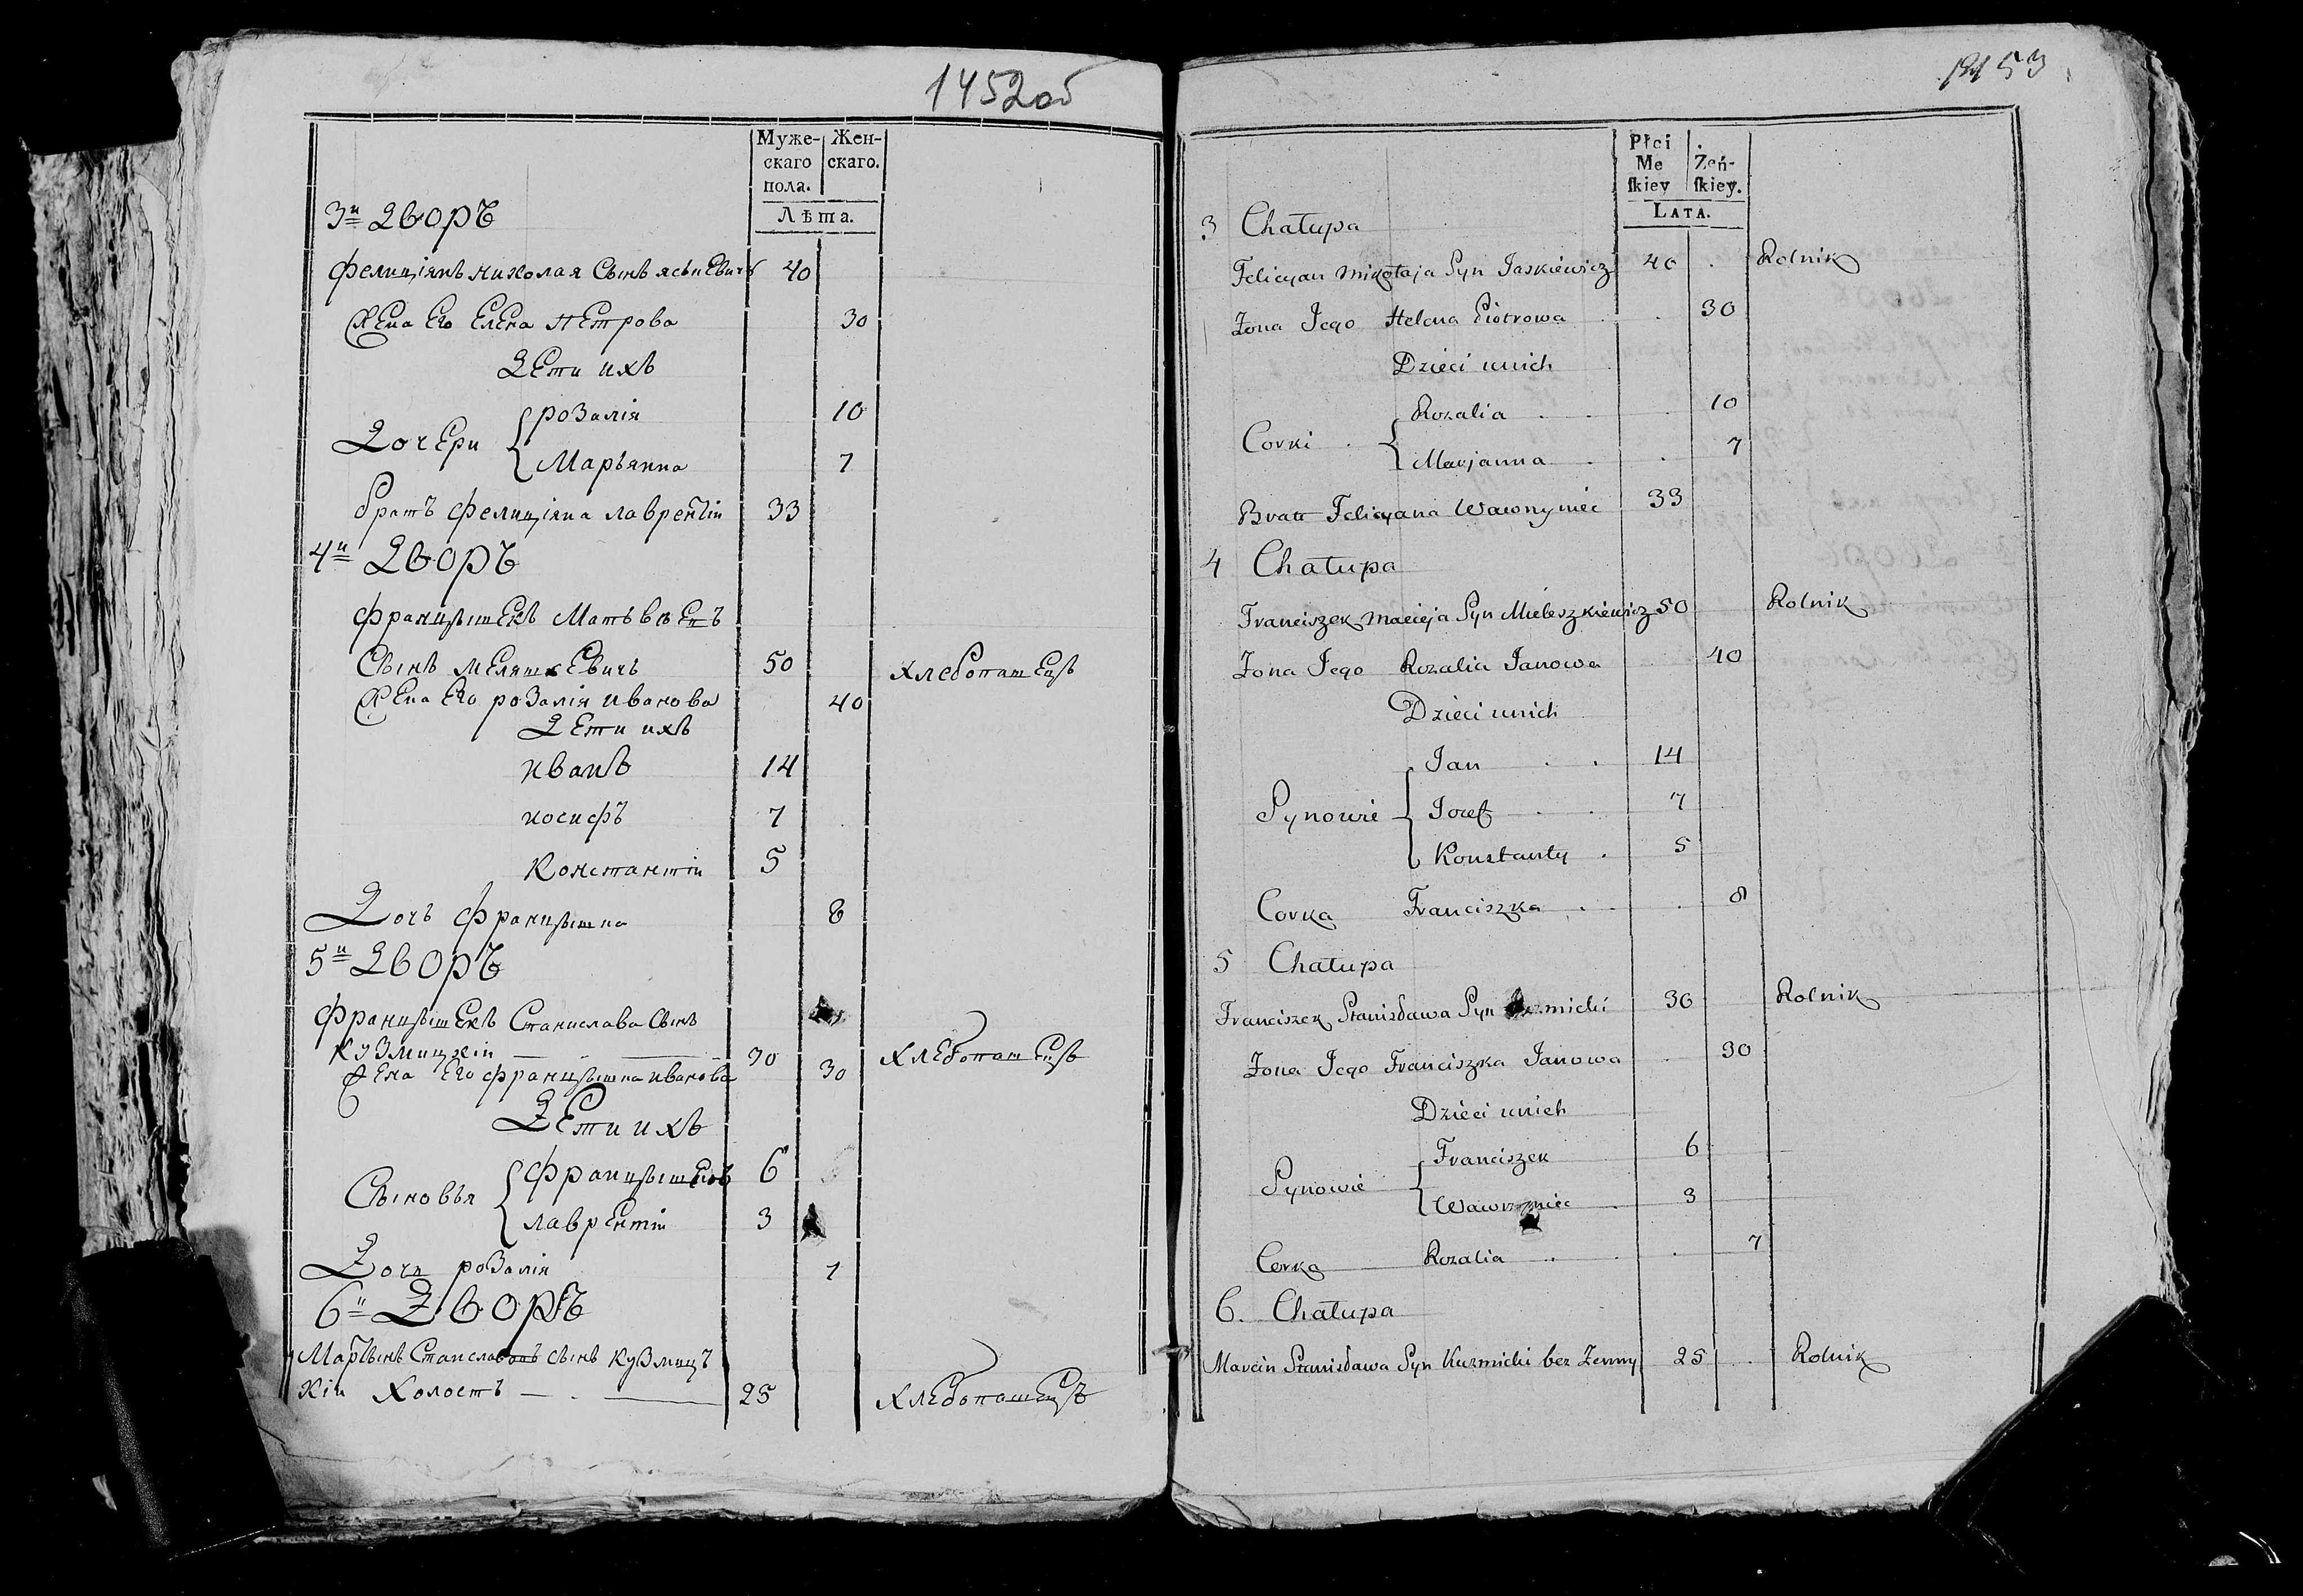 1452об
Муже- Жен-
скаго скаго.
пола.
Лѣта.
3й Дворъ
Фелиціянъ Николая Сынъ Яськевичъ 40
Жена Его Елена Петрова 30
Дети ихъ
Дочери
Розалія 10
Марьянна 7
братъ Фелиціяна Лаврентій 33
4й Дворъ
Францышекъ Матьвѣевъ
Сынъ Меляшкевичъ 50 Хлебопашецъ
Жена Его Розалія Иванова 40
Дети ихъ
Иванъ 14
Иосифъ 7
Константій 5
Дочъ Францышка 8
5й Дворъ
Францышекъ Станислава Сынъ
Кузмицкій 30 Хлебопашецъ
Жена Его Францышка Иванова 30
Дети ихъ
Сыновья
Францышекъ 6
Лаврентій 3
Дочь Розалія 7
6й Дворъ
Мартынъ Станиславовъ сынъ Кузмиц
кій Холостъ 25 Хлебопашецъ
53
Płci .
Mę Żeń-
ſkiey ſkiey.
LATA.
3 Chałupa
Felicyan Mikołaja Syn Jaskiewicz 40 Rolnik
Żona Jego Helena Piotrowa 30
Dzieci unich
Corki
Rozalia 10
Marjanna 7
Bratt Felicyana Wawrzyniec 33
4 Chałupa
Franciszek Macieja Syn Mieleszkiewicz 50 Rolnik
Żona Jego Rozalia Janowa 40
Dzieci unich
Synowie
Jan 14
Jozef 7
Konstanty 5
Corka Franciszka 8
5 Chałupa
Franciszek Stanisława Syn Kuzmicki 30 Rolnik
Żona Jego Franciszka Janowa 30
Dzieci unich
Synowie
Franciszek 6
Wawrzyniec 3
Corka Rozalia 7
6. Chałupa
Marcin Stanisława Syn Kuzmicki bez Żenny 25 Rolnik